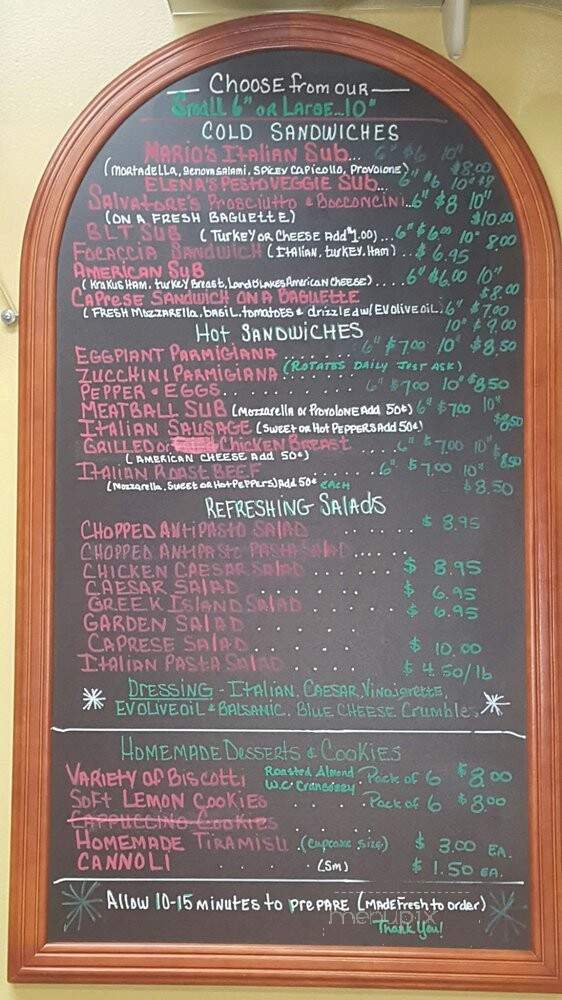 Choose from our
Small 6" or Large...10"
COLD SANDWICHES
MARIO'S ITALIAN SUB... 6" $6 10" $8.00
(MORTADELLA, Genoa Salami, SPICEY CAPICOLLO, PROVOLONE)
ELENA'S PESTO VEGGIE SUB... 6" $6 10" $8
SALVATORE'S PROSCIUTTO & BOCCONCINI...6" $8 10" $10.00
(ON A FRESH BAGUETTE)
BLT SUB (TURKEY OR CHEESE Add $1.00)...6" $6.00 10" 8.00
FOCACCIA SANDWICH (ITALIAN, TURKEY, HAM)...$ 6.95
AMERICAN SUB
(KRAKUS HAM, TURKEY BREAST, Land O Lakes AMERICAN CHEESE)....6" $6.00 10" $8.00
CAPRESE SANDWICH ON A BAGUETTE
(FRESH MOZZARELLA, BASIL, TOMATOES & drizzled w/ EV OLIVE OIL. 6" $7.00
10" $9.00
HOT SANDWICHES
EGGPLANT PARMIGIANA ....... 6" $7.00 10" $8.50
ZUCCHINI PARMIGIANA (ROTATES DAILY JUST ASK)
PEPPER & EGGS............ 6" $7.00 10" $8.50
MEATBALL SUB (MOZZARELLA OR PROVOLONE Add 50¢) 6" $7.00 10" $8.50
ITALIAN SAUSAGE (SWEET OR HOT PEPPERS Add 50¢)
GRILLED or CHICKEN BREAST .... 6" $7.00 10" $8.50
(AMERICAN CHEESE Add 50¢)
ITALIAN ROAST BEEF .......... 6" $7.00 10" $8.50
(MOZZARELLA, SWEET OR HOT PEPPERS) Add 50¢ EACH
REFRESHING SALADS
CHOPPED ANTIPASTO SALAD ....... $ 8.95
CHOPPED ANTIPASTO PASTA SALAD .....
CHICKEN CAESAR SALAD ...... $ 8.95
CAESAR SALAD ...... $ 6.95
GREEK ISLAND SALAD ..... $ 6.95
GARDEN SALAD .....
CAPRESE SALAD ....... $ 10.00
ITALIAN PASTA SALAD ...... $ 4.50/lb
DRESSING - ITALIAN, CAESAR, Vinaigrette,
EV OLIVE OIL & BALSAMIC, BLUE CHEESE Crumbles
HOMEMADE DESSERTS & COOKIES
VARIETY OF BISCOTTI Roasted Almond Pack of 6 $8.00
W.C. Cranberry
SOFT LEMON COOKIES .... Pack of 6 $8.00
CAPPUCCINO COOKIES
HOMEMADE TIRAMISU (Cupcake size) $ 3.00 EA.
CANNOLI . . . (Sm) $ 1.50 EA.
ALLOW 10-15 MINUTES to PREPARE (MADE FRESH to ORDER)
menupix
Thank You!